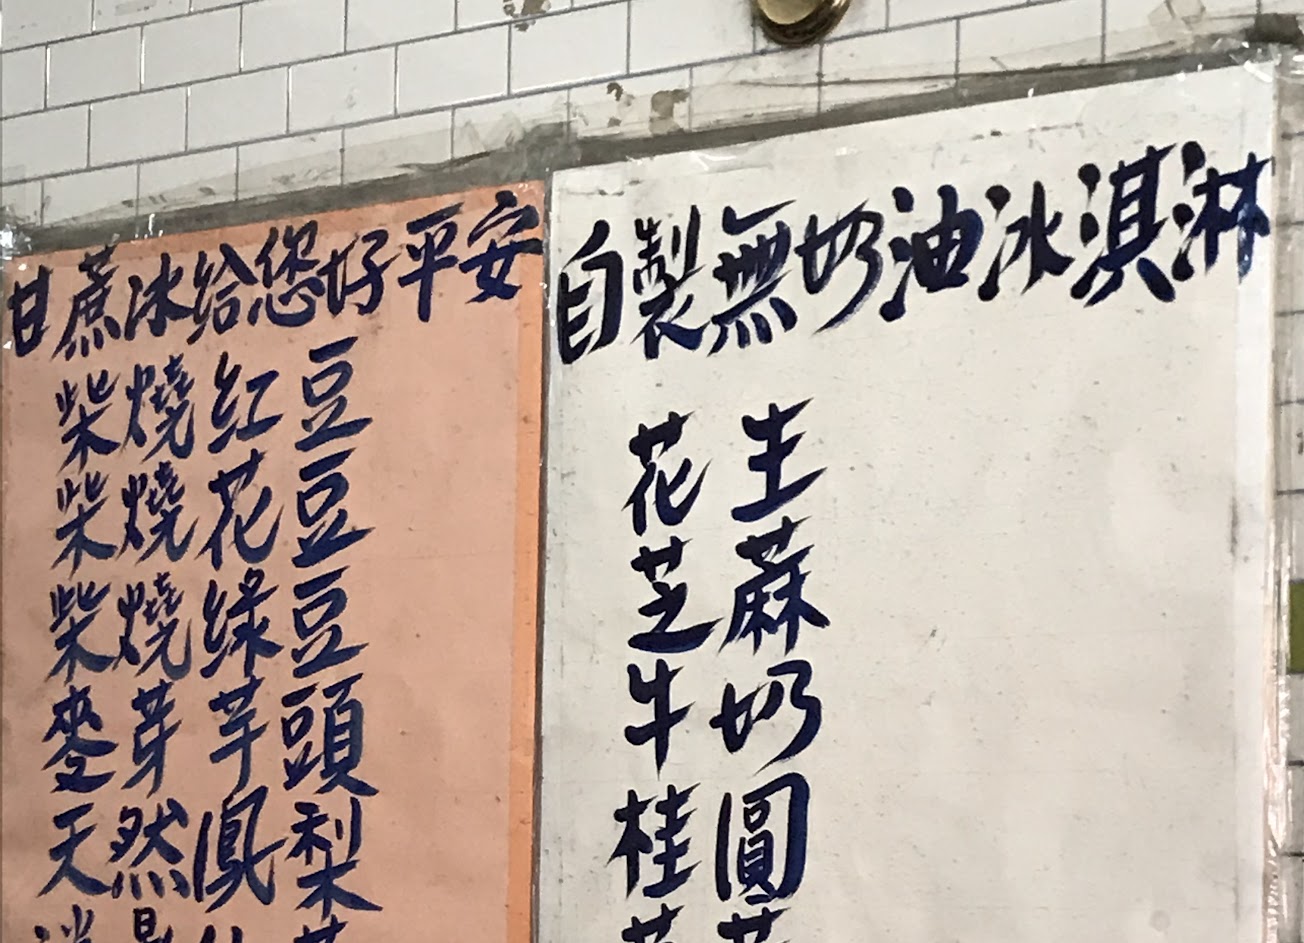 甘蔗冰給您好平安
柴燒紅豆
柴燒花豆
柴燒綠豆
麥芽芋頭
天然鳳梨
自製無奶油冰淇淋
花生
芝蔴
牛奶
桂圓